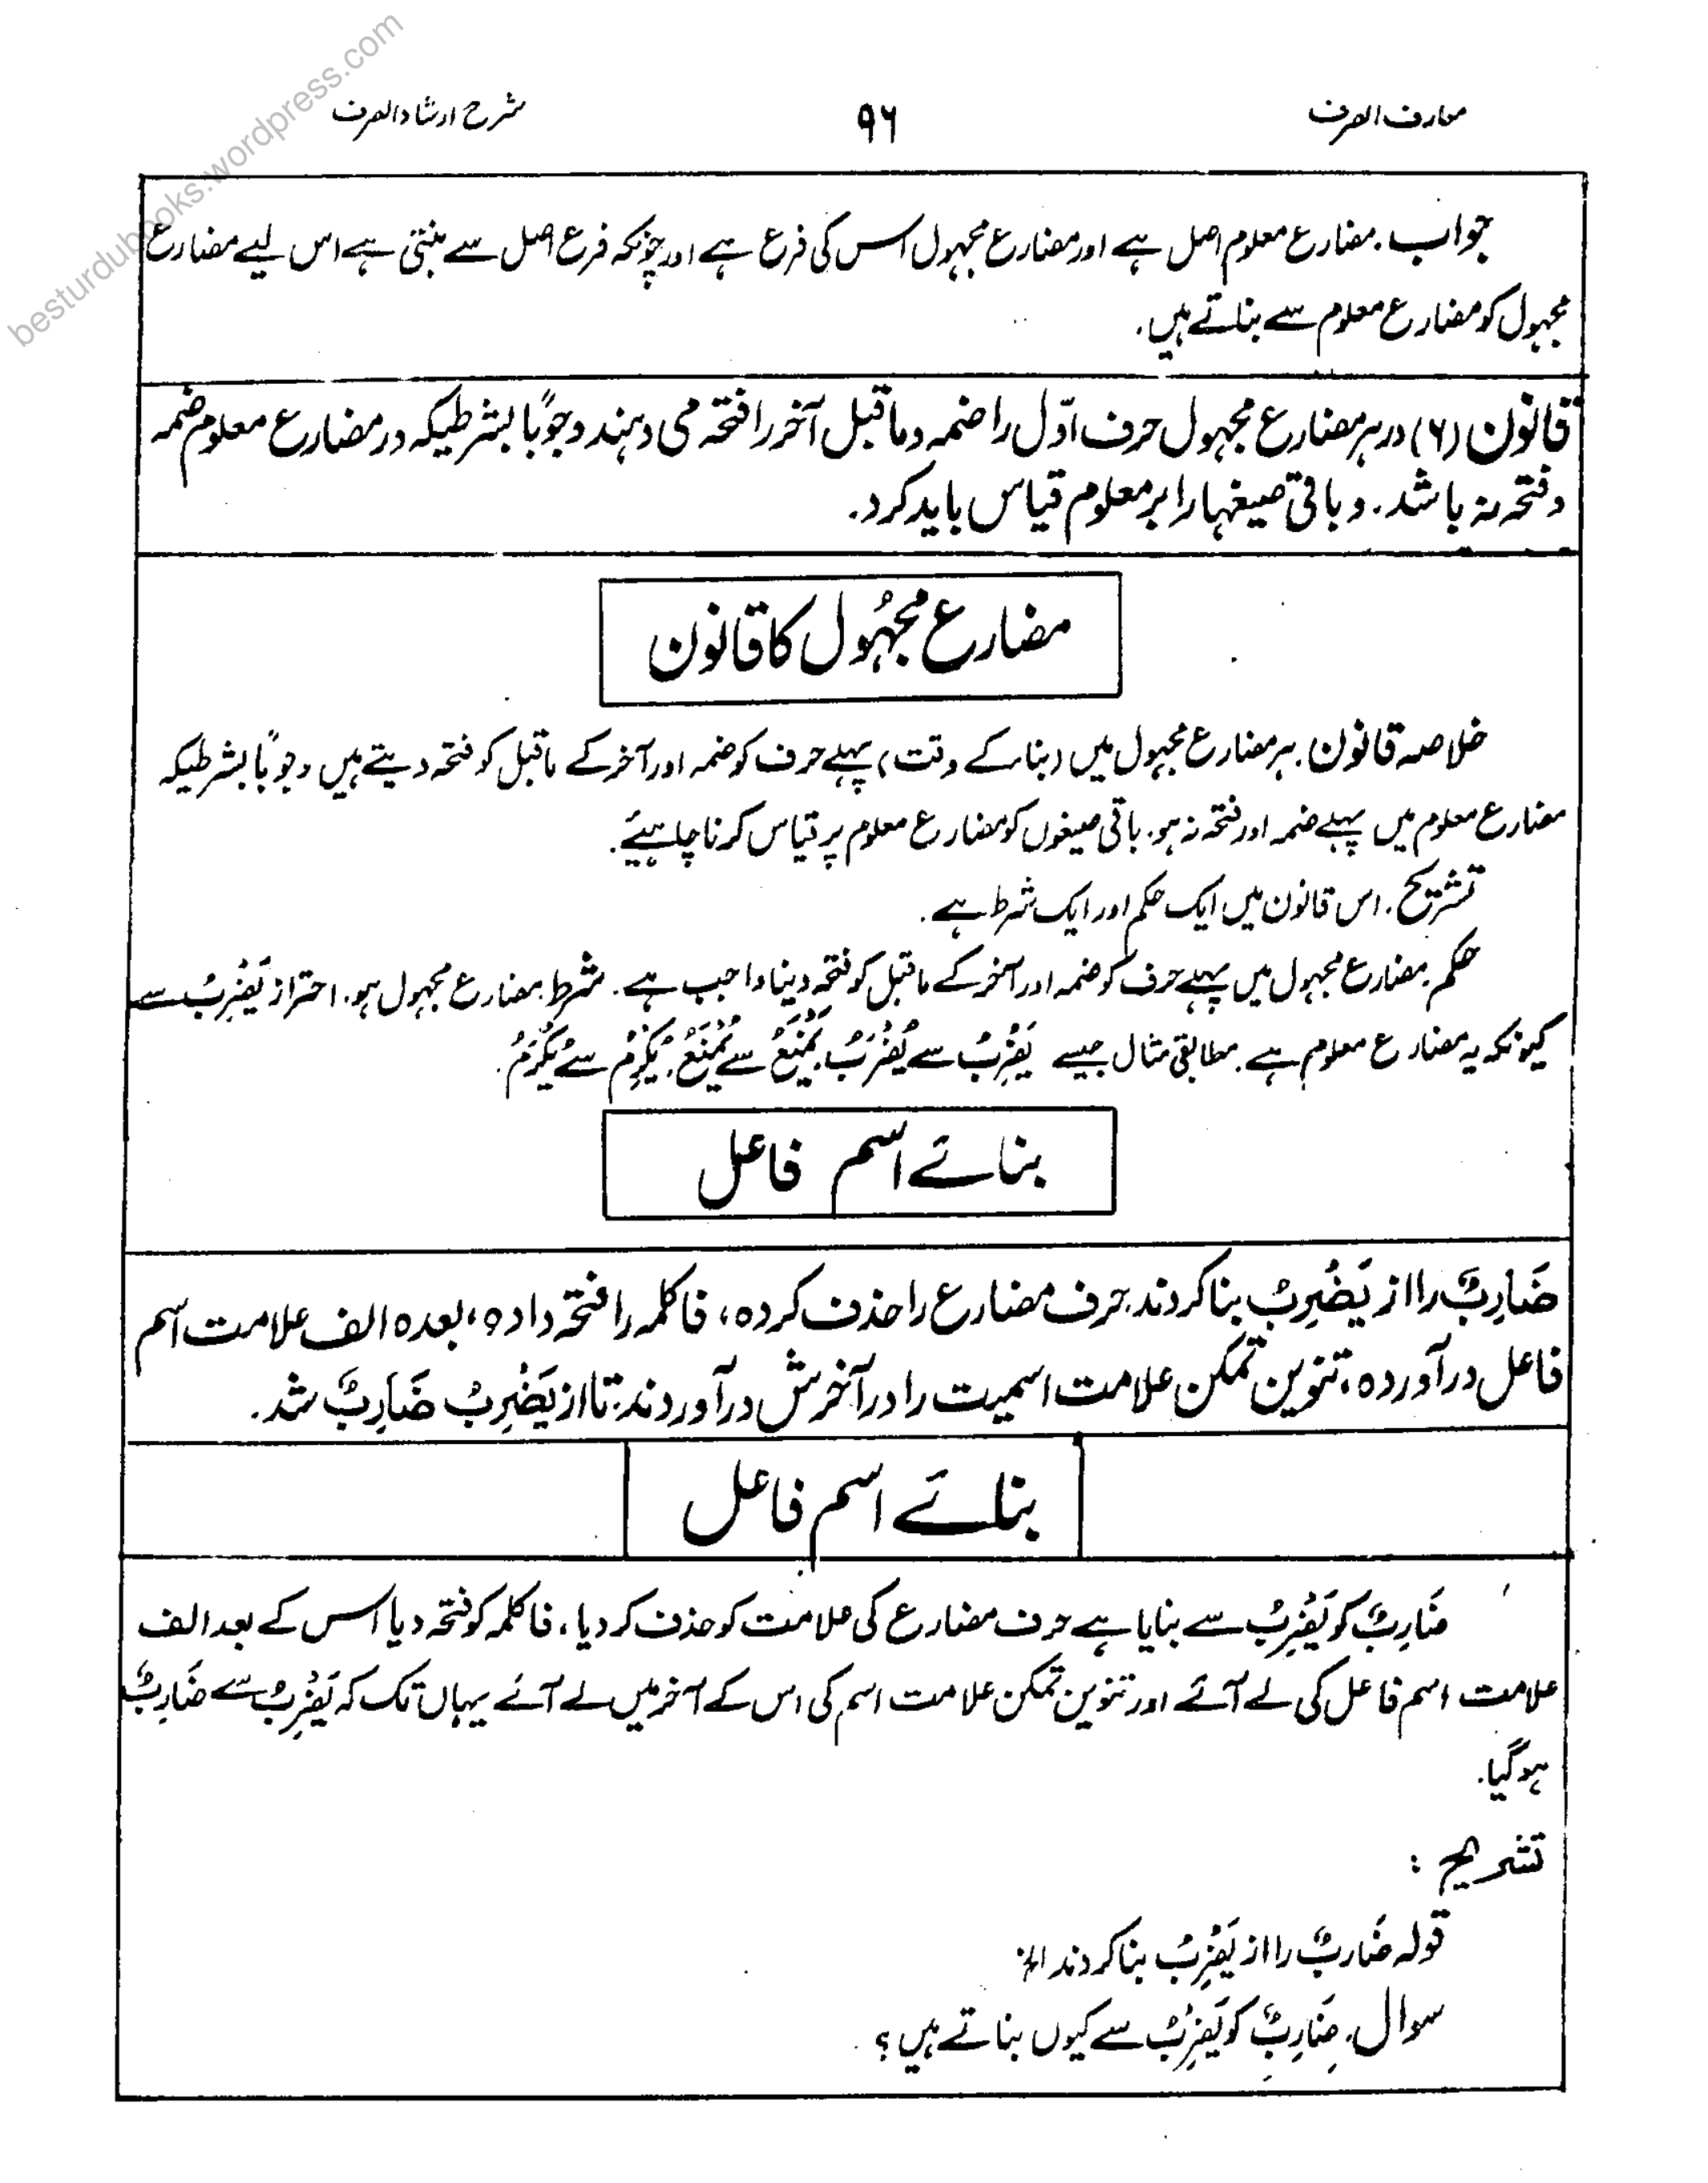 معارف الصرف
۹۶
شرح ارشاد الصرف
جواب. مضارع معلوم اصل ہے اور مضارع مجہول اس کی فرع ہے اور چونکہ فرع اصل سے بنتی ہے اس لیے مضارع
مجہول کو مضارع معلوم سے بناتے ہیں.
قانون (۶) در ہر مضارع مجہول حرف اوّل را ضمہ و ما قبل آخر را فتحہ می دہند وجوباً بشرطیکہ در مضارع معلوم ضمہ
و فتحہ نہ باشد. و باقی صیغہا را بر معلوم قیاس باید کرد.
مضارع مجہُول کا قانون
خلاصہ قانون. ہر مضارع مجہول میں (بناء کے وقت) پہلے حرف کو ضمہ اور آخر کے ماقبل کو فتحہ دیتے ہیں وجوباً بشرطیکہ
مضارع معلوم میں پہلے ضمہ اور فتحہ نہ ہو. باقی صیغوں کو مضارع معلوم پر قیاس کرنا چاہیئے.
تشریح. اس قانون میں ایک حکم اور ایک شرط ہے.
حکم. مضارع مجہول میں پہلے حرف کو ضمہ اور آخر کے ماقبل کو فتحہ دینا واجب ہے. شرط. مضارع مجہول ہو. احتراز یَضْرِبُ سے
کیونکہ یہ مضارع معلوم ہے. مطابقی مثال جیسے یَضْرِبُ سے یُضْرَبُ. یَمْنَعُ سے یُمْنَعُ. یُکْرِمُ سے یُکْرَمُ.
بنائے اسم فاعل
ضَارِبٌ را از یَضْرِبُ بنا کردند. حرف مضارع را حذف کردہ، فا کلمہ را فتحہ دادہ، بعدہ الف علامت اسم
فاعل در آوردہ، تنوین تمکن علامت اسمیت را در آخرش در آوردند. تا از یَضْرِبُ ضَارِبٌ شد.
بنائے اسم فاعل
ضَارِبٌ کو یَضْرِبُ سے بنایا ہے حرف مضارع کی علامت کو حذف کر دیا، فا کلمہ کو فتحہ دیا اس کے بعد الف
علامت اسم فاعل کی لے آئے اور تنوین تمکن علامت اسم کی اس کے آخر میں لے آئے یہاں تک کہ یَضْرِبُ سے ضَارِبٌ
ہوگیا.
تشریح :
قولہ ضَارِبٌ را از یَضْرِبُ بنا کردند الخ
سوال. ضَارِبٌ کو یَضْرِبُ سے کیوں بناتے ہیں؟
besturdubooks.wordpress.com